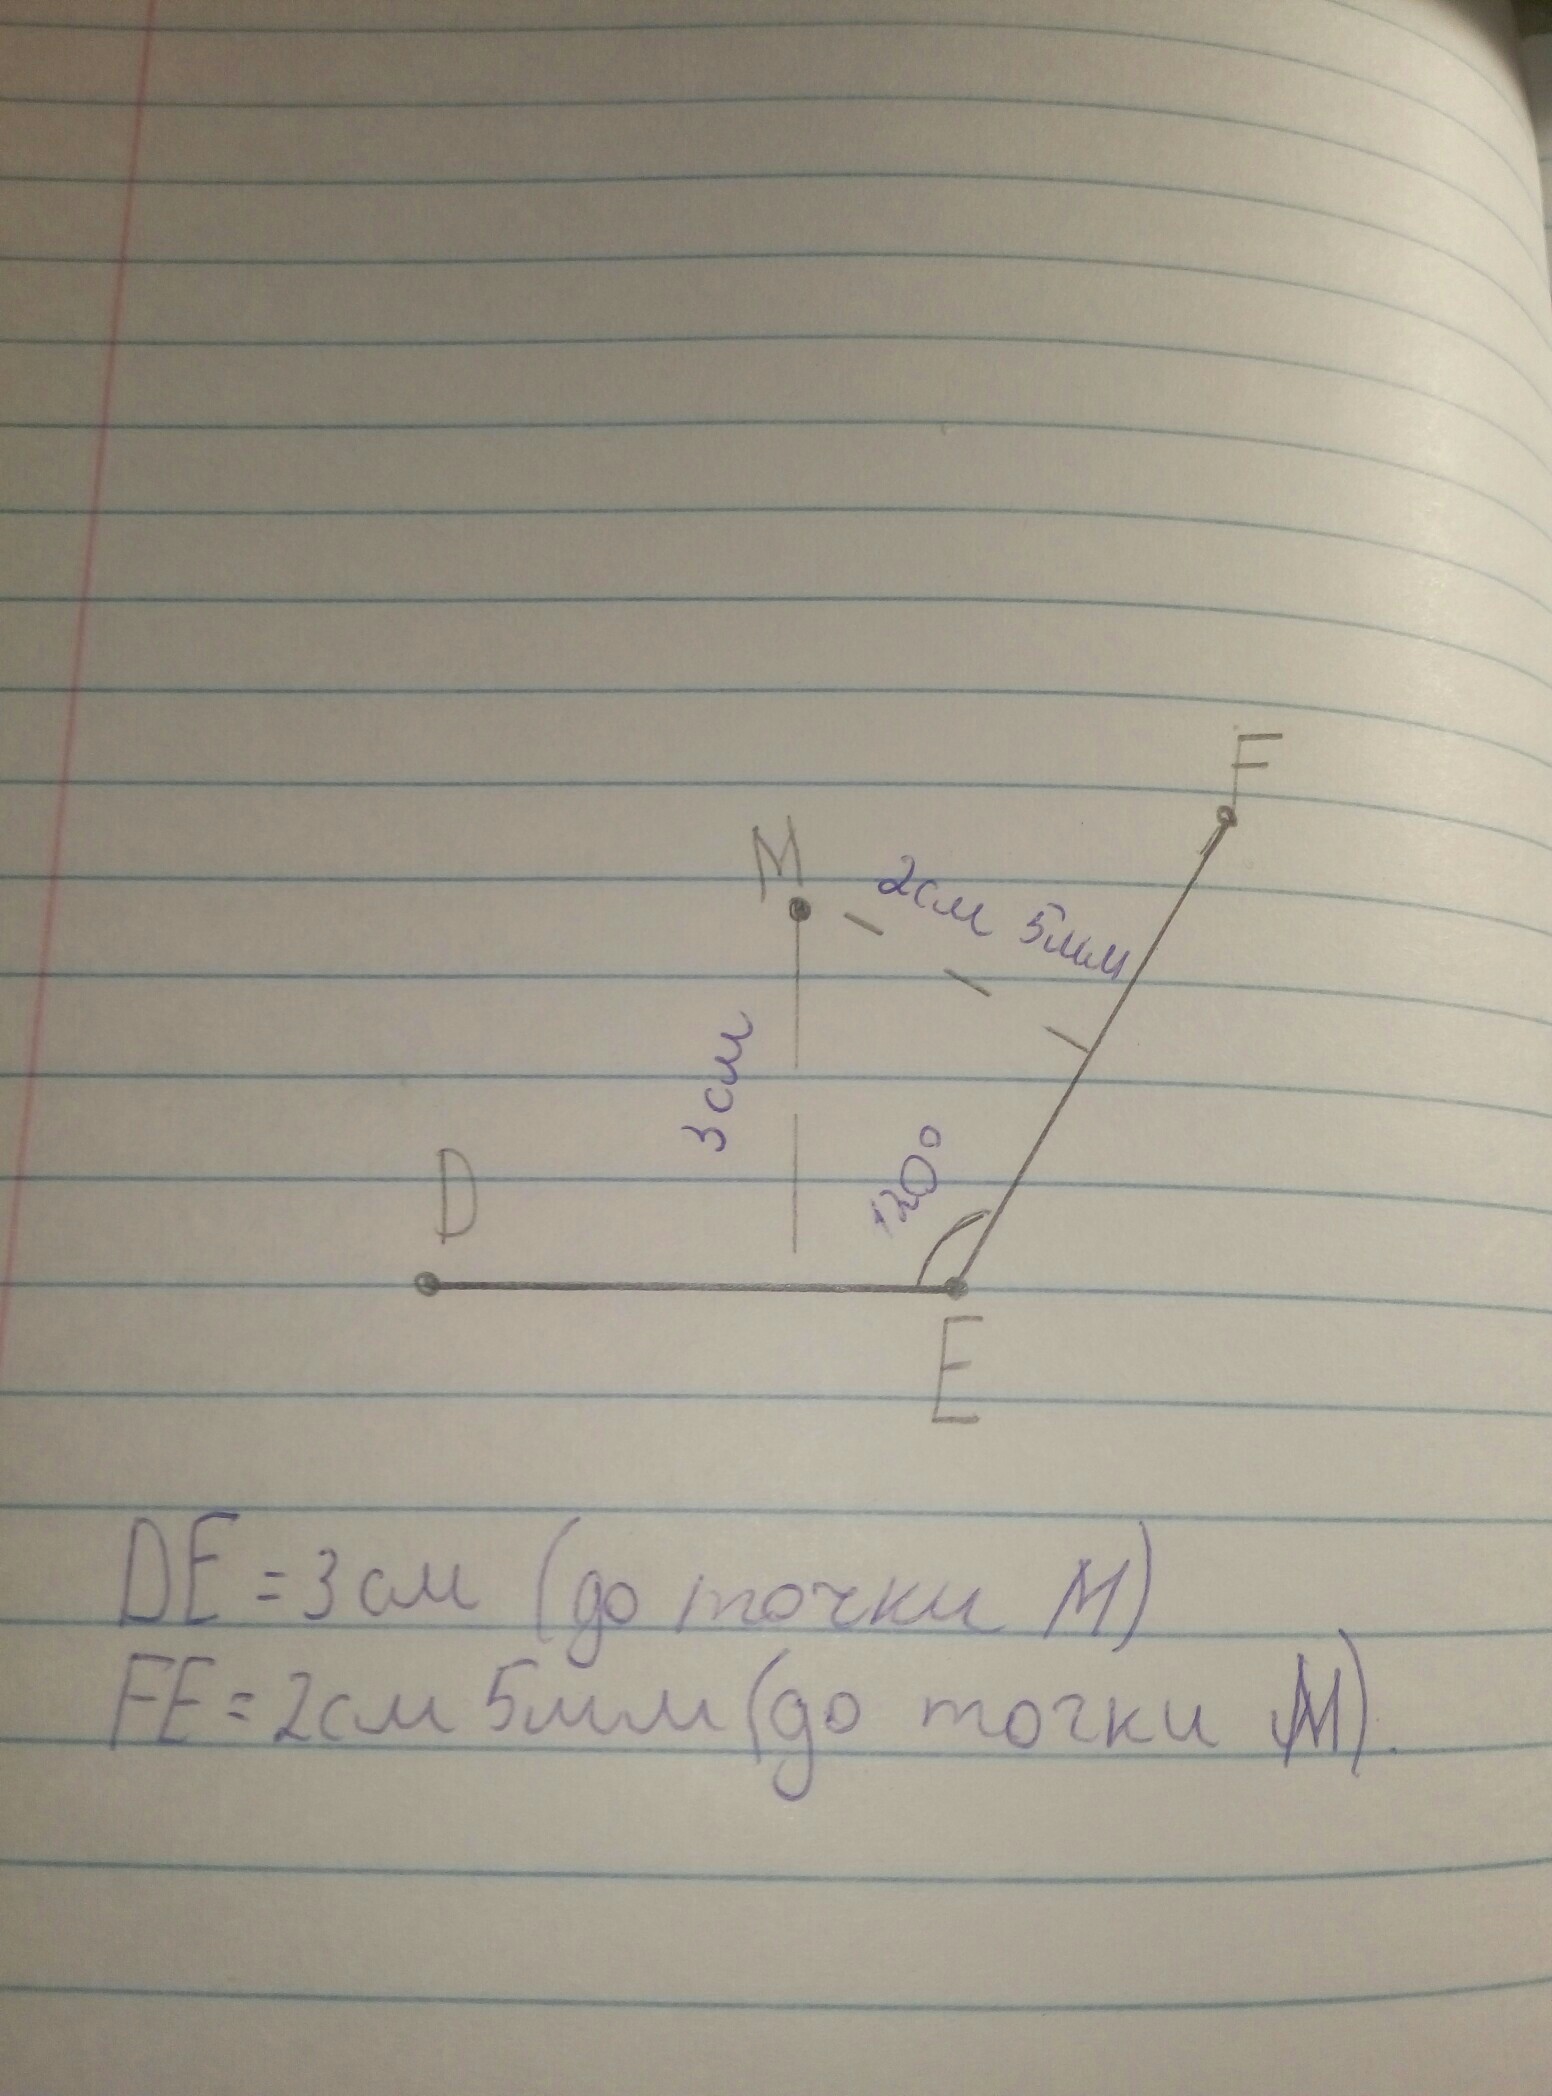 F
M
2см 5мм
3 см
D
120°
E
DE = 3 см (до точки М)
FE = 2 см 5 мм (до точки М).